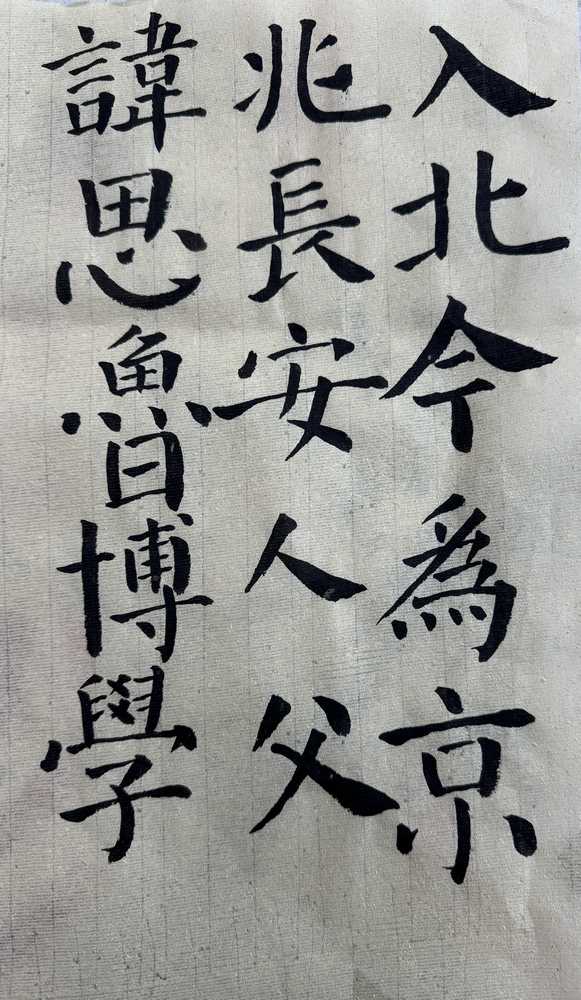 入北今為京
兆長安人父
諱思魯博學